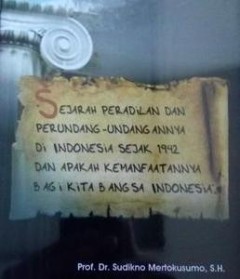 SEJARAH PERADILAN DAN
PERUNDANG-UNDANGANNYA
DI INDONESIA SEJAK 1942
DAN APAKAH KEMANFAATANNYA
BAGI KITA BANGSA INDONESIA
Prof. Dr. Sudikno Mertokusumo, S.H.